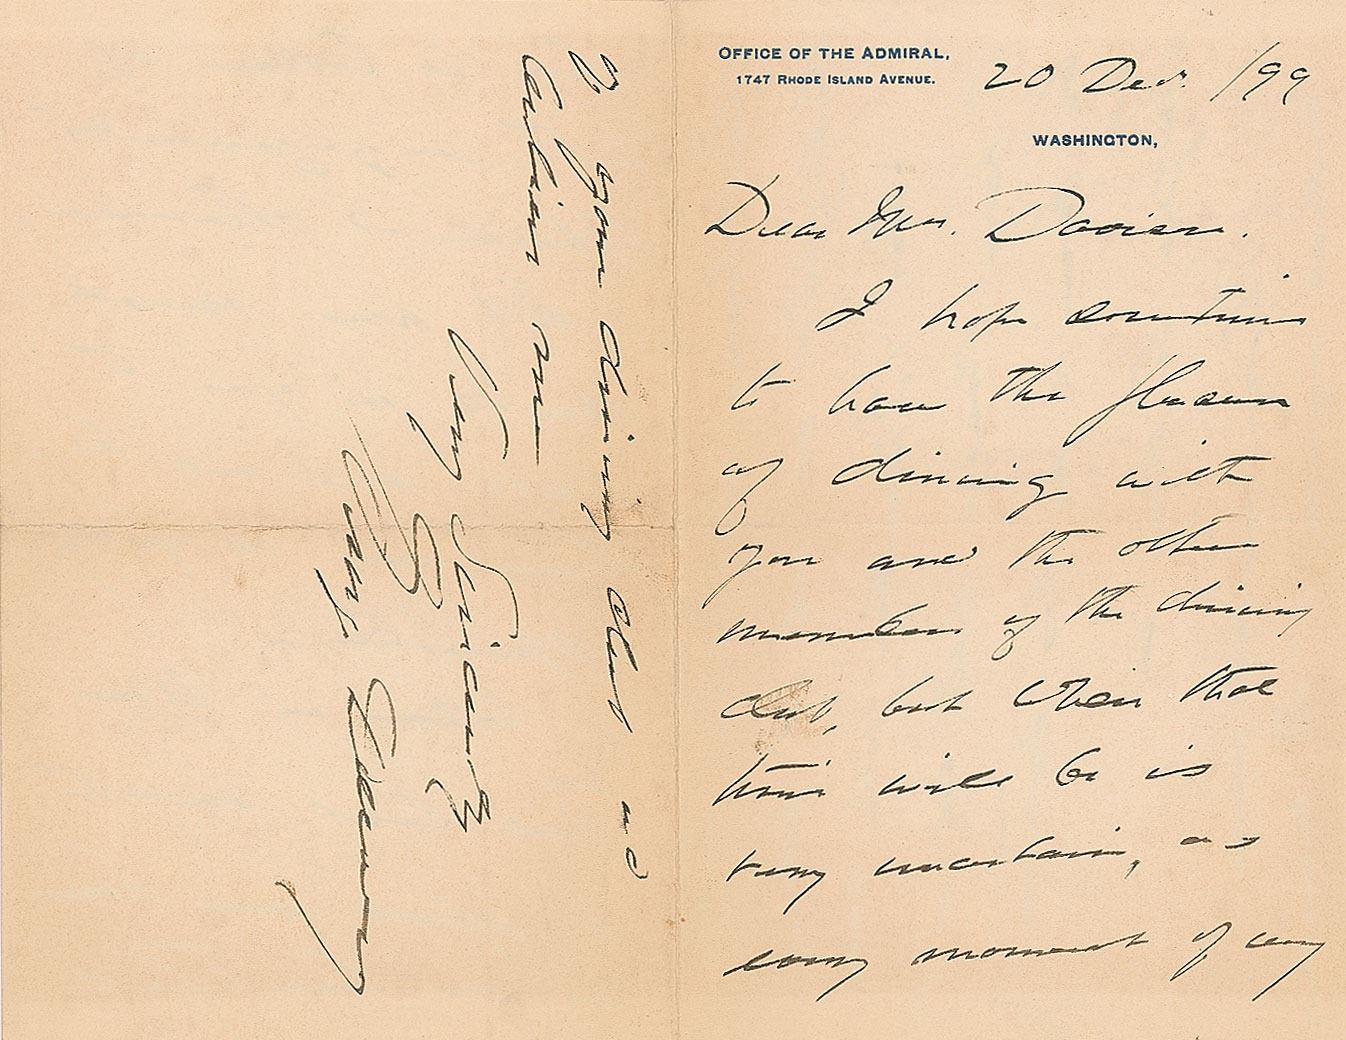 OFFICE OF THE ADMIRAL,
1747 RHODE ISLAND AVENUE.
20 Dec. /99
WASHINGTON,
Dear Mr. Davison.
I hope sometime
to have the pleasure
of dining with
you and the other
members of the dining
club, but when that
time will be is
very uncertain, as
every moment of my
your dining club and
me
Very Sincerely
George Dewey